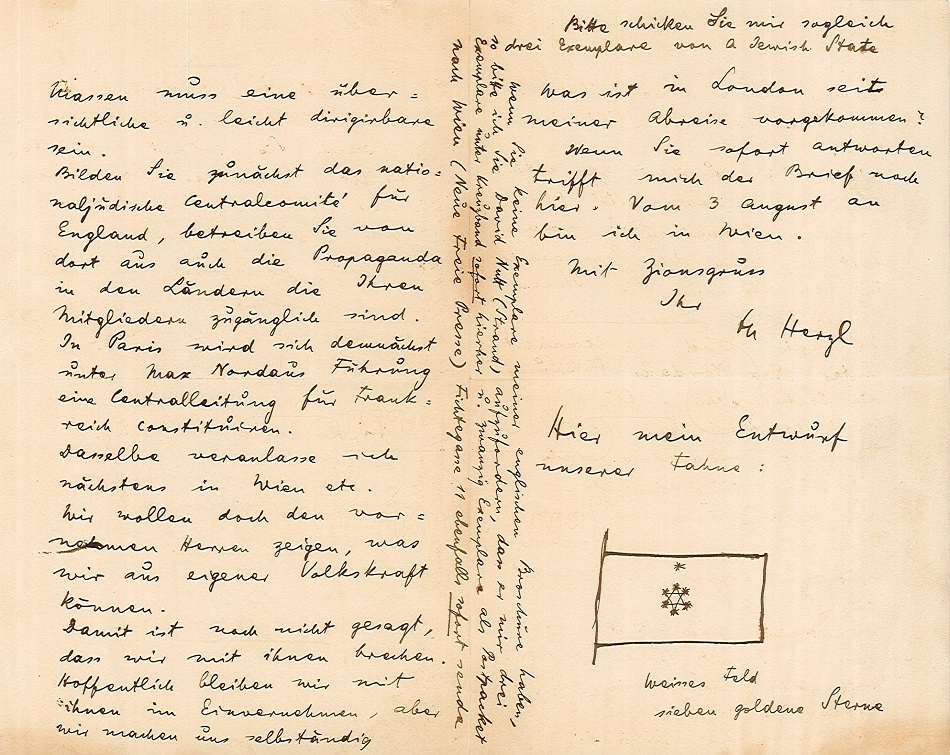 Massen muss eine über=
sichtliche u. leicht dirigirbare
sein.
Bilden Sie zunächst das natio=
naljüdische Centralcomité für
England, betreiben Sie von
dort aus auch die Propaganda
in den Ländern die Ihren
Mitgliedern zugänglich sind.
In Paris wird sich demnächst
unter Max Nordaus Führung
eine Centralleitung für Frank=
reich constituiren.
Dasselbe veranlasse ich
nächstens in Wien etc.
Wir wollen doch den vor=
nehmen Herren zeigen, was
wir aus eigener Volkskraft
können.
Damit ist noch nicht gesagt,
dass wir mit ihnen brechen.
Hoffentlich bleiben wir mit
ihnen im Einvernehmen, aber
wir machen uns selbständig
Bitte schicken Sie mir sogleich
drei Exemplare von A Jewish State
Wenn Sie keine Exemplare meiner englischen Broschure haben,
so bitte ich Sie David Nutt (Strand) aufzufordern, dass er mir drei
Exemplare unter Kreuzband sofort hierher u. zwanzig Exemplare als Postpacket
nach Wien (Neue Freie Presse) Fichtegasse 11 ebenfalls sofort sende.
Was ist in London seit
meiner Abreise vorgekommen?
Wenn Sie sofort antworten
trifft mich der Brief noch
hier. Vom 3 August an
bin ich in Wien.
Mit Zionsgruss
Ihr
Th Herzl
Hier mein Entwurf
unserer Fahne:
weisses Feld
sieben goldene Sterne